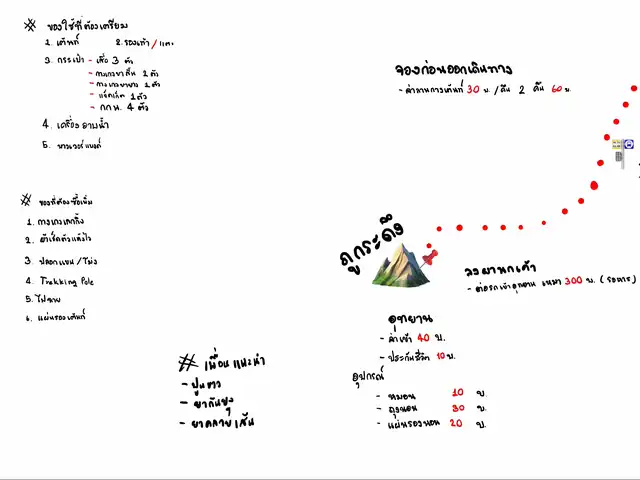 # ของใช้ที่ต้องเตรียม
1. เต้นท์ 2. รองเท้า / แตะ
3. กระเป๋า - เสื้อ 3 ตัว
- กางเกงขาสั้น 2 ตัว
- กางเกงขายาว 2 ตัว
- แจ็คเก็ต 1 ตัว
- กกน. 4 ตัว
4. เครื่องอาบน้ำ
5. พาวเวอร์แบงค์
# ของที่ต้องซื้อเพิ่ม
1. กางเกงเลกกิ้ง
2. ผ้าเช็ดตัวแห้งไว
3. ปลอกแขน / โม่ง
4. Trekking Pole
5. ไฟฉาย
6. แผ่นรองเต้นท์
# เพื่อนแนะนำ
- ปูนขาว
- ยากันยุง
- ยาคลายเส้น
จองก่อนออกเดินทาง
- ค่ากางเต้นท์ 30 บ. / คืน 2 คืน 60 บ.
ภูกระดึง
ลงผานกเค้า
- ต่อรถเข้าอุทยาน เหมา 300 บ. (รอหาร)
อุทยาน
- ค่าเข้า 40 บ.
- ประกันชีวิต 10 บ.
อุปกรณ์
- หมอน 10 บ.
- ถุงนอน 30 บ.
- แผ่นรองนอน 20 บ.